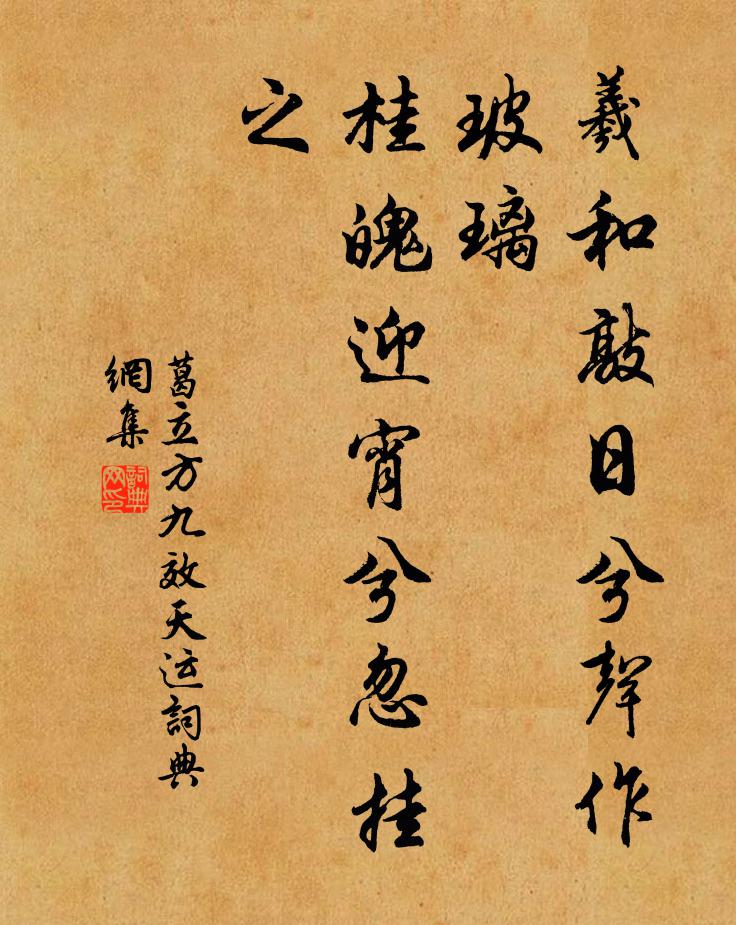 羲和敲日兮聲作
玻璃
桂魄迎宵兮忽挂
之
葛立方九效天运詞典
網集
詞典
网印